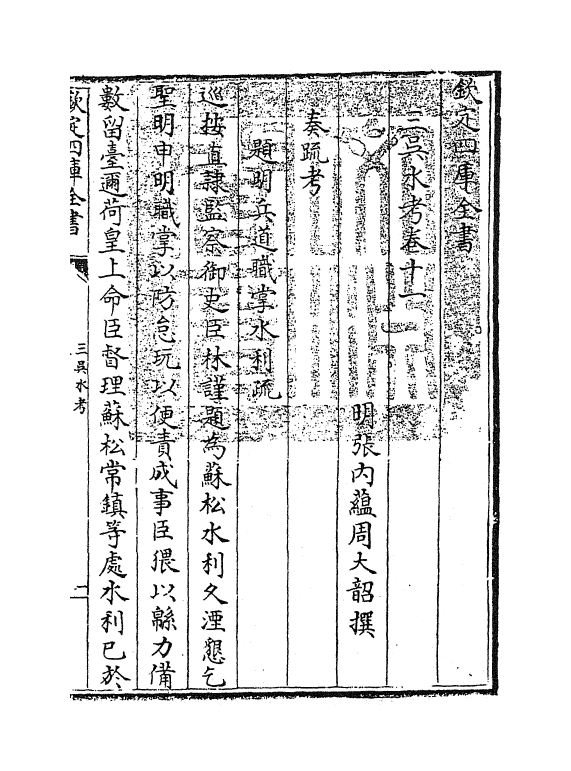 欽定四庫全書
三吳水考卷十一
明張內蘊周大韶撰
奏疏考
題明兵道職掌水利疏
巡按直隸監察御史臣林謹題為蘇松水利久湮懇乞
聖明申明職掌以防怠玩以便責成事臣猥以緜力備
數留臺邇荷皇上命臣督理蘇松常鎮等處水利已於
欽定四庫全書
三吳水考
一